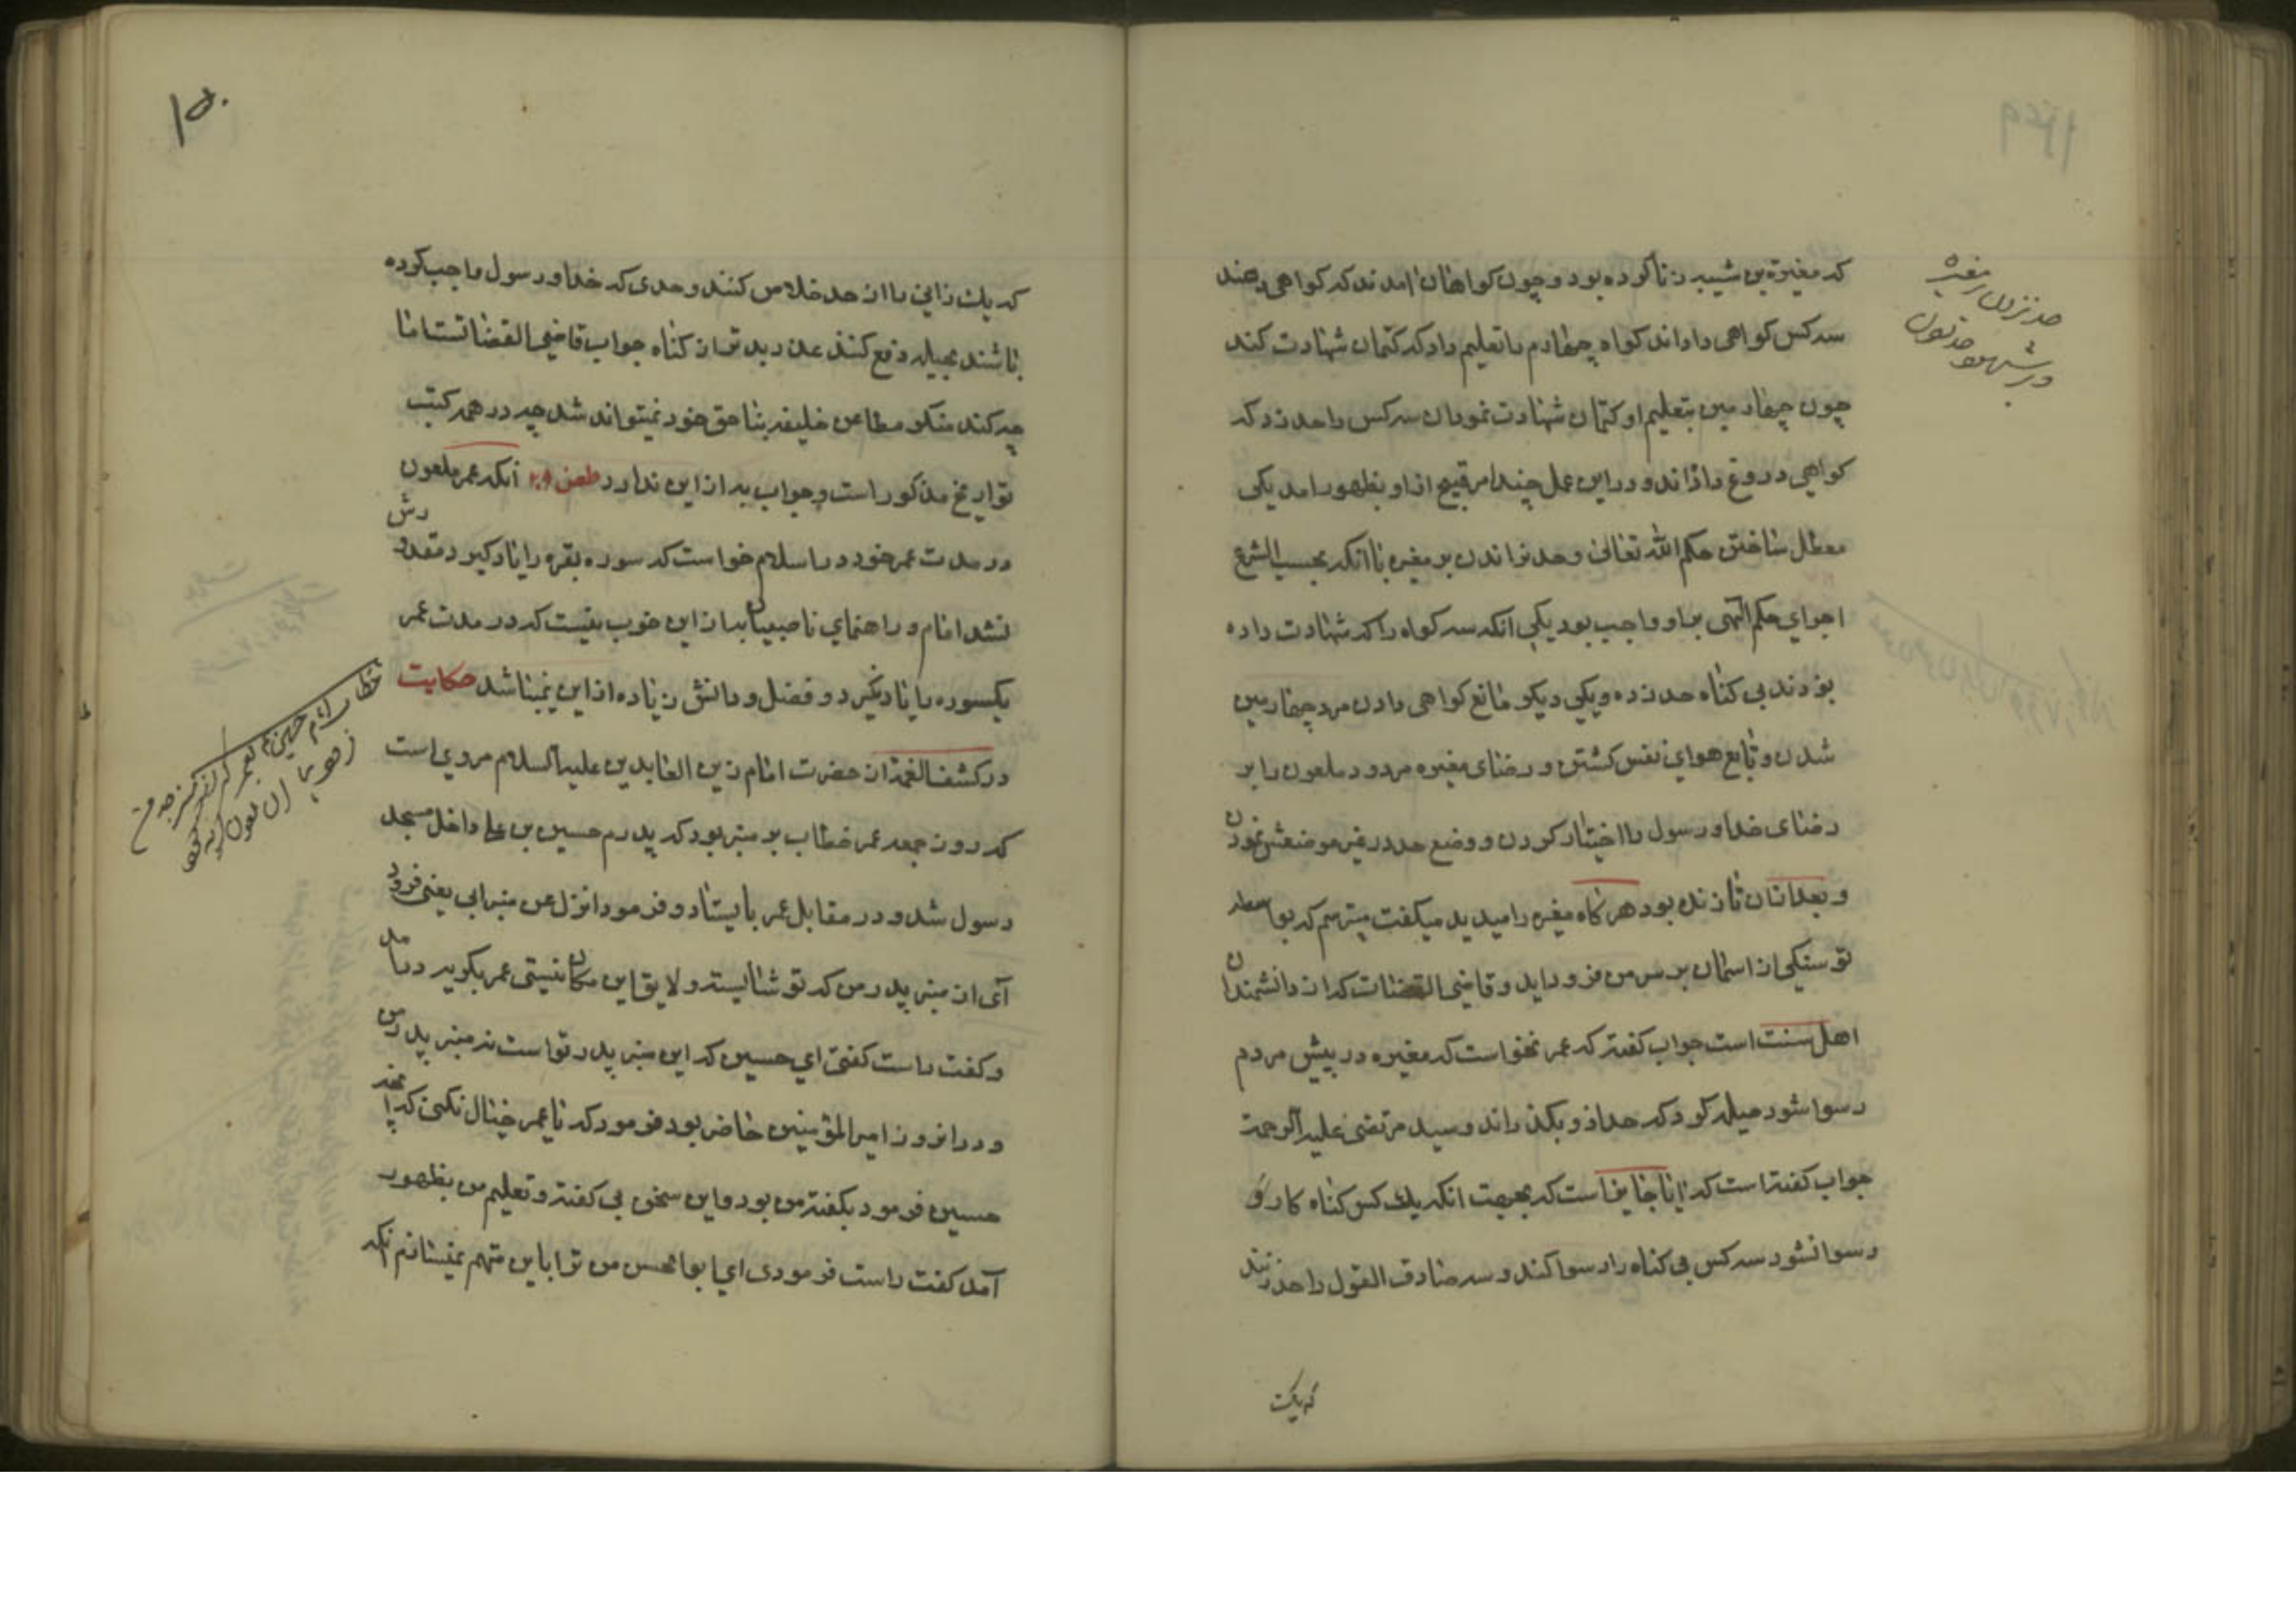 که مغیرة بن شیبه زنا کرده بود و چون کواهان امدند که کواهی دهند
سه کس کواهی دادند کواه چهارم را تعلیم داد که کتمان شهادت کند
چون چهارمین بتعلیم او کتمان شهادت نمود ان سه کس را حد زد که
کواهی دروغ داده‌اند و در این عمل چند امر قبیح از او بظهور امد یکی
معطل ساختن حکم الله تعالی و حد نراندن بر مغیره با آنکه بحسب الشرع
اجرای حکم الهی بر او واجب بود یکی انکه سه کواه را که شهادت داده
بودند بی کناه حد زده و یکی دیکر مانع کواهی دادن مرد چهارمین
شدن و تابع هوای نفس کشتن و رضای مغیره مردود ملعون را بر
رضای خدا و رسول را اختیار کردن و وضع حد در غیر موضعش نمودن
و بعد از ان تا زنده بود هر کاه مغیره را میدید میکفت میترسم که بواسطه
تو سنکی از اسمان بر سر من فرود اید و قاضی القضات که از دانشمندان
اهل سنت است جواب کفته که عمر نخواست که مغیره در پیش مردم
رسوا شود حیله کرد که حد از و بکذراند و سید مرتضی علیه الرحمة
جواب کفته است که ایا جایز است که بجهت انکه یک کس کناه کار و
رسوا نشود سه کس بی کناه را رسوا کند و سه صادق القول را حد زنند
که یک
حد نزدن مغیره
که یک زانی را از حد خلاص کنند و حدی که خدا و رسول واجب کرده
باشند بحیله دفع کنند عذر بدتر از کناه جواب قاضی القضاتست اما
چه کند منکر مطاعن خلیفه بنا حق خود نمیتواند شد چه در همه کتب
تواریخ مذکور است و جواب به از این ندارد طعن ۲۹ آنکه عمر ملعون
در مدت عمر خود در اسلام خواست که سوره بقره را یاد کیرد مقدورش
نشد امام و راهنمای ناصبیان به از این خوب نیست که در مدت عمر
یکسوره را یاد نکیرد و فضل و دانش زیاده از این نمیباشد حکایت
در کشف الغمه از حضرت امام زین العابدین علیه السلام مروی است
که روز جمعه عمر خطاب بر منبر بود که پدرم حسین بن علی داخل مسجد
رسول شد و در مقابل عمر بایستاد و فرمود انزل عن منبر ابی یعنی فرود
آی از منبر پدر من که تو شایسته و لایق این مکان نیستی عمر بکریه در امد
و کفت راست کفتی ای حسین که این منبر پدر تو است نه منبر پدر من
و در انروز امیر المؤمنین حاضر بود فرمود که یا عمر خیال نکنی که انچه
حسین فرمود بکفته من بود و این سخن بی کفته و تعلیم من بظهور
آمد کفت راست فرمودی ای ابو الحسن من ترا باین متهم نمیسازم انکه